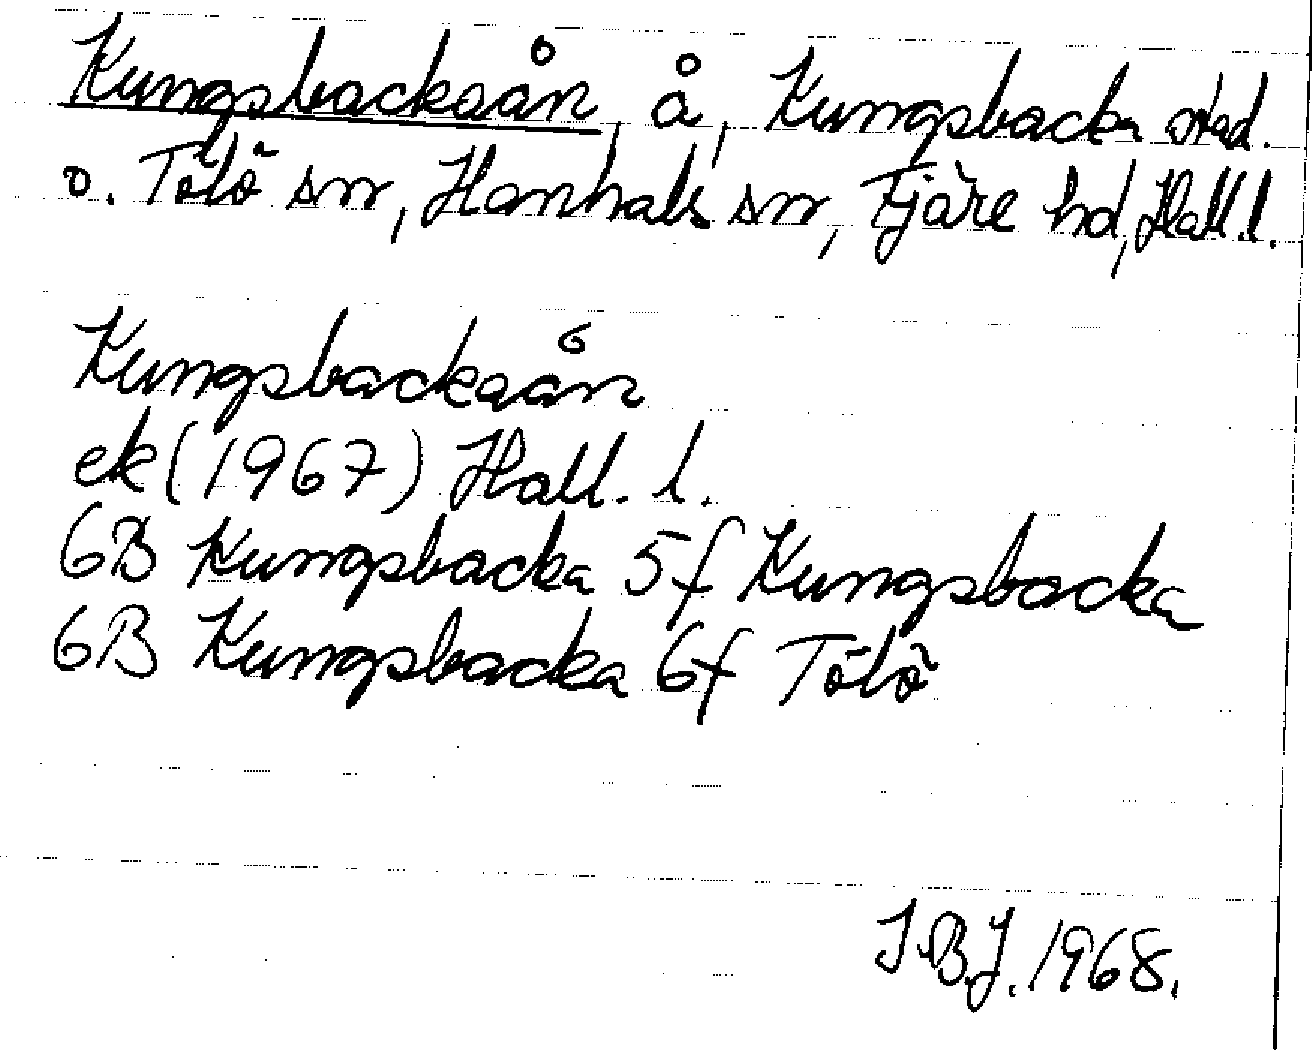 Kungsbackaån, å, Kungsbacka stad.
o. Tölö sn, Hanhals sn, Fjäre hd, Hall.l.
Kungsbackaån
ek (1967) Hall. l.
6B Kungsbacka 5f Kungsbacka
6B Kungsbacka 6f Tölö
I.B.J. 1968.